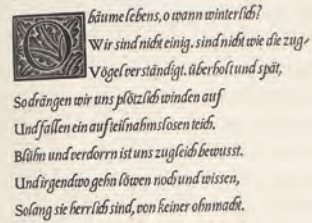 O bäume lebens, o wann winterlich?
Wir sind nicht einig. sind nicht wie die zug-
Vögel verständigt. überholt und spät,
So drängen wir uns plötzlich winden auf
Und fallen ein auf teilnahmslosen teich.
Blühn und verdorrn ist uns zugleich bewusst.
Und irgendwo gehn löwen noch und wissen,
Solang sie herrlich sind, von keiner ohnmacht.